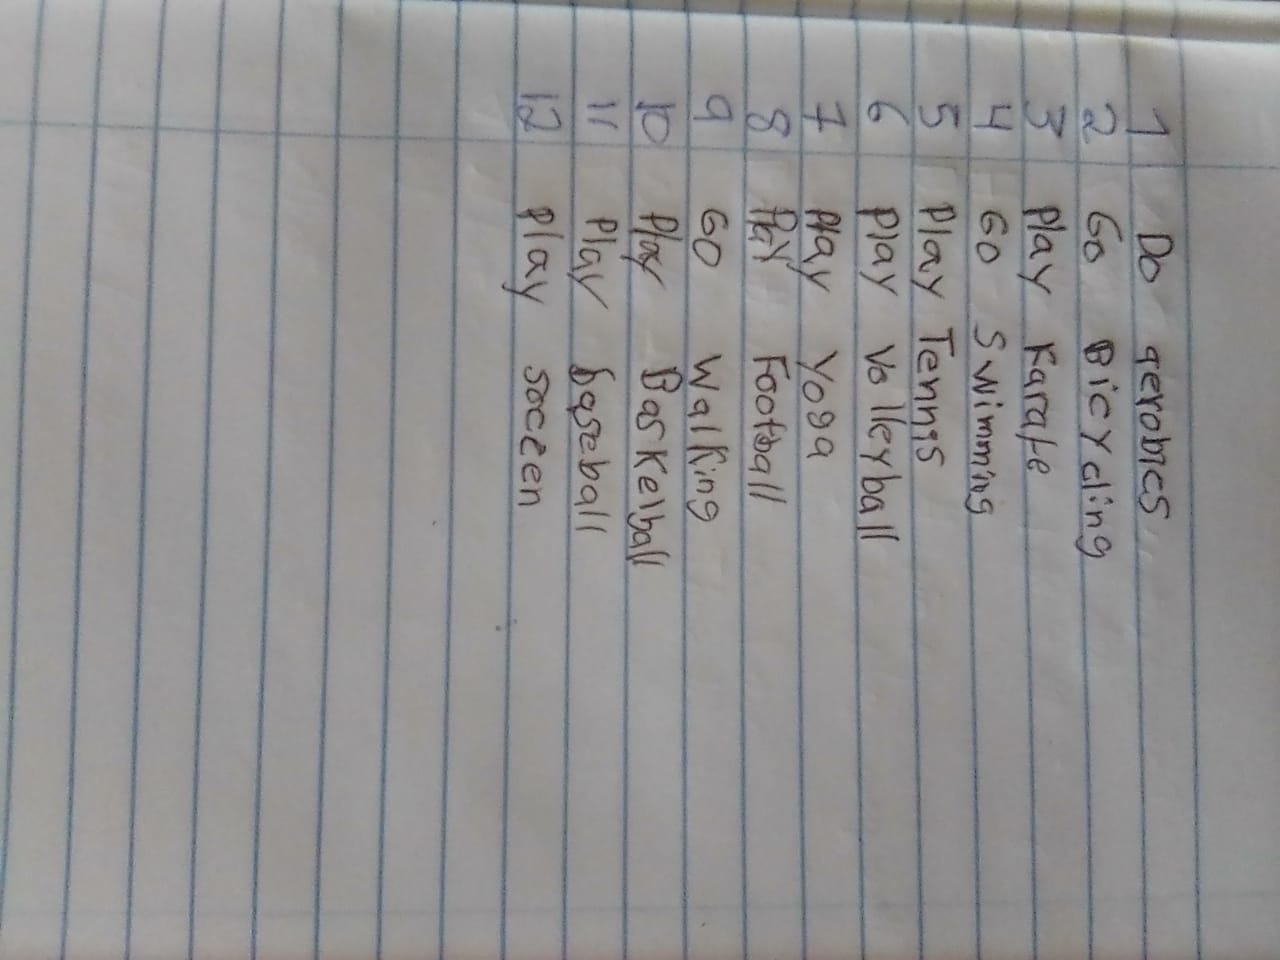 1 Do aerobics
2 Go Bicycling
3 Play Karate
4 Go Swimming
5 Play Tennis
6 Play Volleyball
7 Play Yoga
8 Play Football
9 Go Walking
10 Play Baskelball
11 Play baseball
12 Play soccen